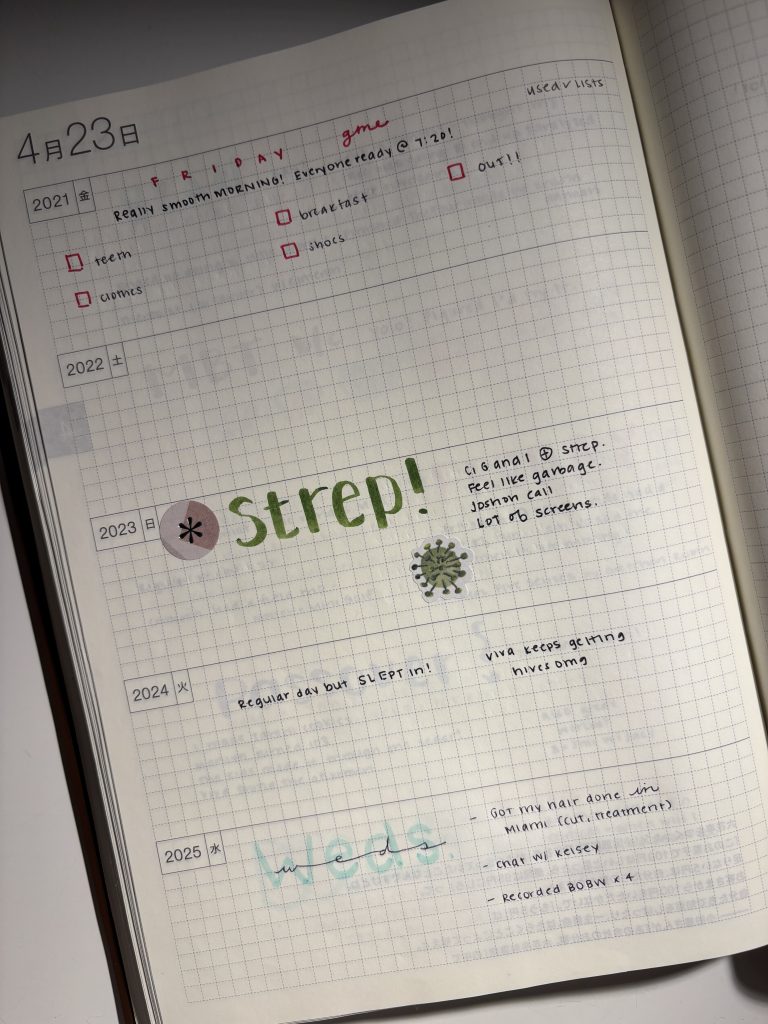 4月23日
used v lists
FRIDAY gme
2021 金
Really smooth MORNING! Everyone ready @ 7:20!
teeth
clothes
breakfast
shoes
OUT!!
2022 土
2023 日
*
Strep!
CiG and I ⊕ strep.
Feel like garbage.
Josh on call
LOT of screens.
2024 火
Regular day but SLEPT in!
Viva keeps getting
hives omg
2025 水
Weds.
weds
- Got my hair done in
Miami (cut, treatment)
- chat w/ Kelsey
- Recorded BOBW x 4